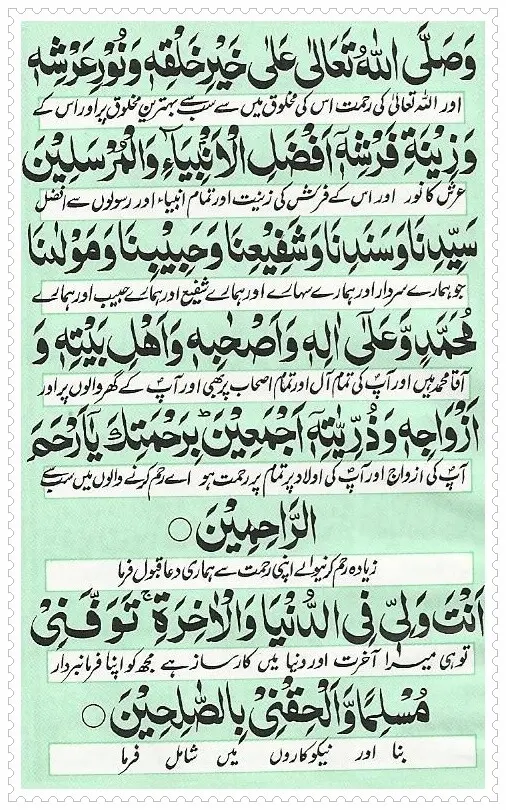 وَصَلَّى اللّٰهُ تَعَالٰى عَلٰى خَيْرِ خَلْقِهٖ وَنُوْرِ عَرْشِهٖ
اور اللہ تعالیٰ کی رحمت اس کی مخلوق میں سے سب سے بہترین مخلوق پر اور اس کے
وَزِيْنَةِ فَرْشِهٖ اَفْضَلِ الْاَنْبِيَآءِ وَالْمُرْسَلِيْنَ
عرش کا نور اور اس کے فرش کی زینت اور تمام انبیاء اور رسولوں سے افضل
سَيِّدِنَا وَسَنَدِنَا وَشَفِيْعِنَا وَحَبِيْبِنَا وَمَوْلٰنَا
جو ہمارے سردار اور ہمارے سہارے اور ہمارے شفیع اور ہمارے حبیب اور ہمارے
مُحَمَّدٍ وَّعَلٰٓى اٰلِهٖ وَاَصْحٰبِهٖ وَاَهْلِ بَيْتِهٖ وَ
آقا محمد ہیں اور آپ کی تمام آل اور تمام اصحاب پر بھی اور آپ کے گھر والوں پر اور
اَزْوَاجِهٖ وَذُرِّيّٰتِهٖٓ اَجْمَعِيْنَ ط بِرَحْمَتِكَ يَآ اَرْحَمَ
آپ کی ازواج اور آپ کی اولاد پر تمام پر رحمت ہو اے رحم کرنے والوں میں سب سے
الرَّاحِمِيْنَ ○
زیادہ رحم کرنیوالے اپنی رحمت سے ہماری دعا قبول فرما
اَنْتَ وَلِيّٖ فِى الدُّنْيَا وَالْاٰخِرَةِ ۚ تَوَفَّنِيْ
تو ہی میرا آخرت اور دنیا میں کارساز ہے مجھ کو اپنا فرمانبردار
مُسْلِمًا وَّاَلْحِقْنِيْ بِالصّٰلِحِيْنَ ○
بنا اور نیکوکاروں میں شامل فرما